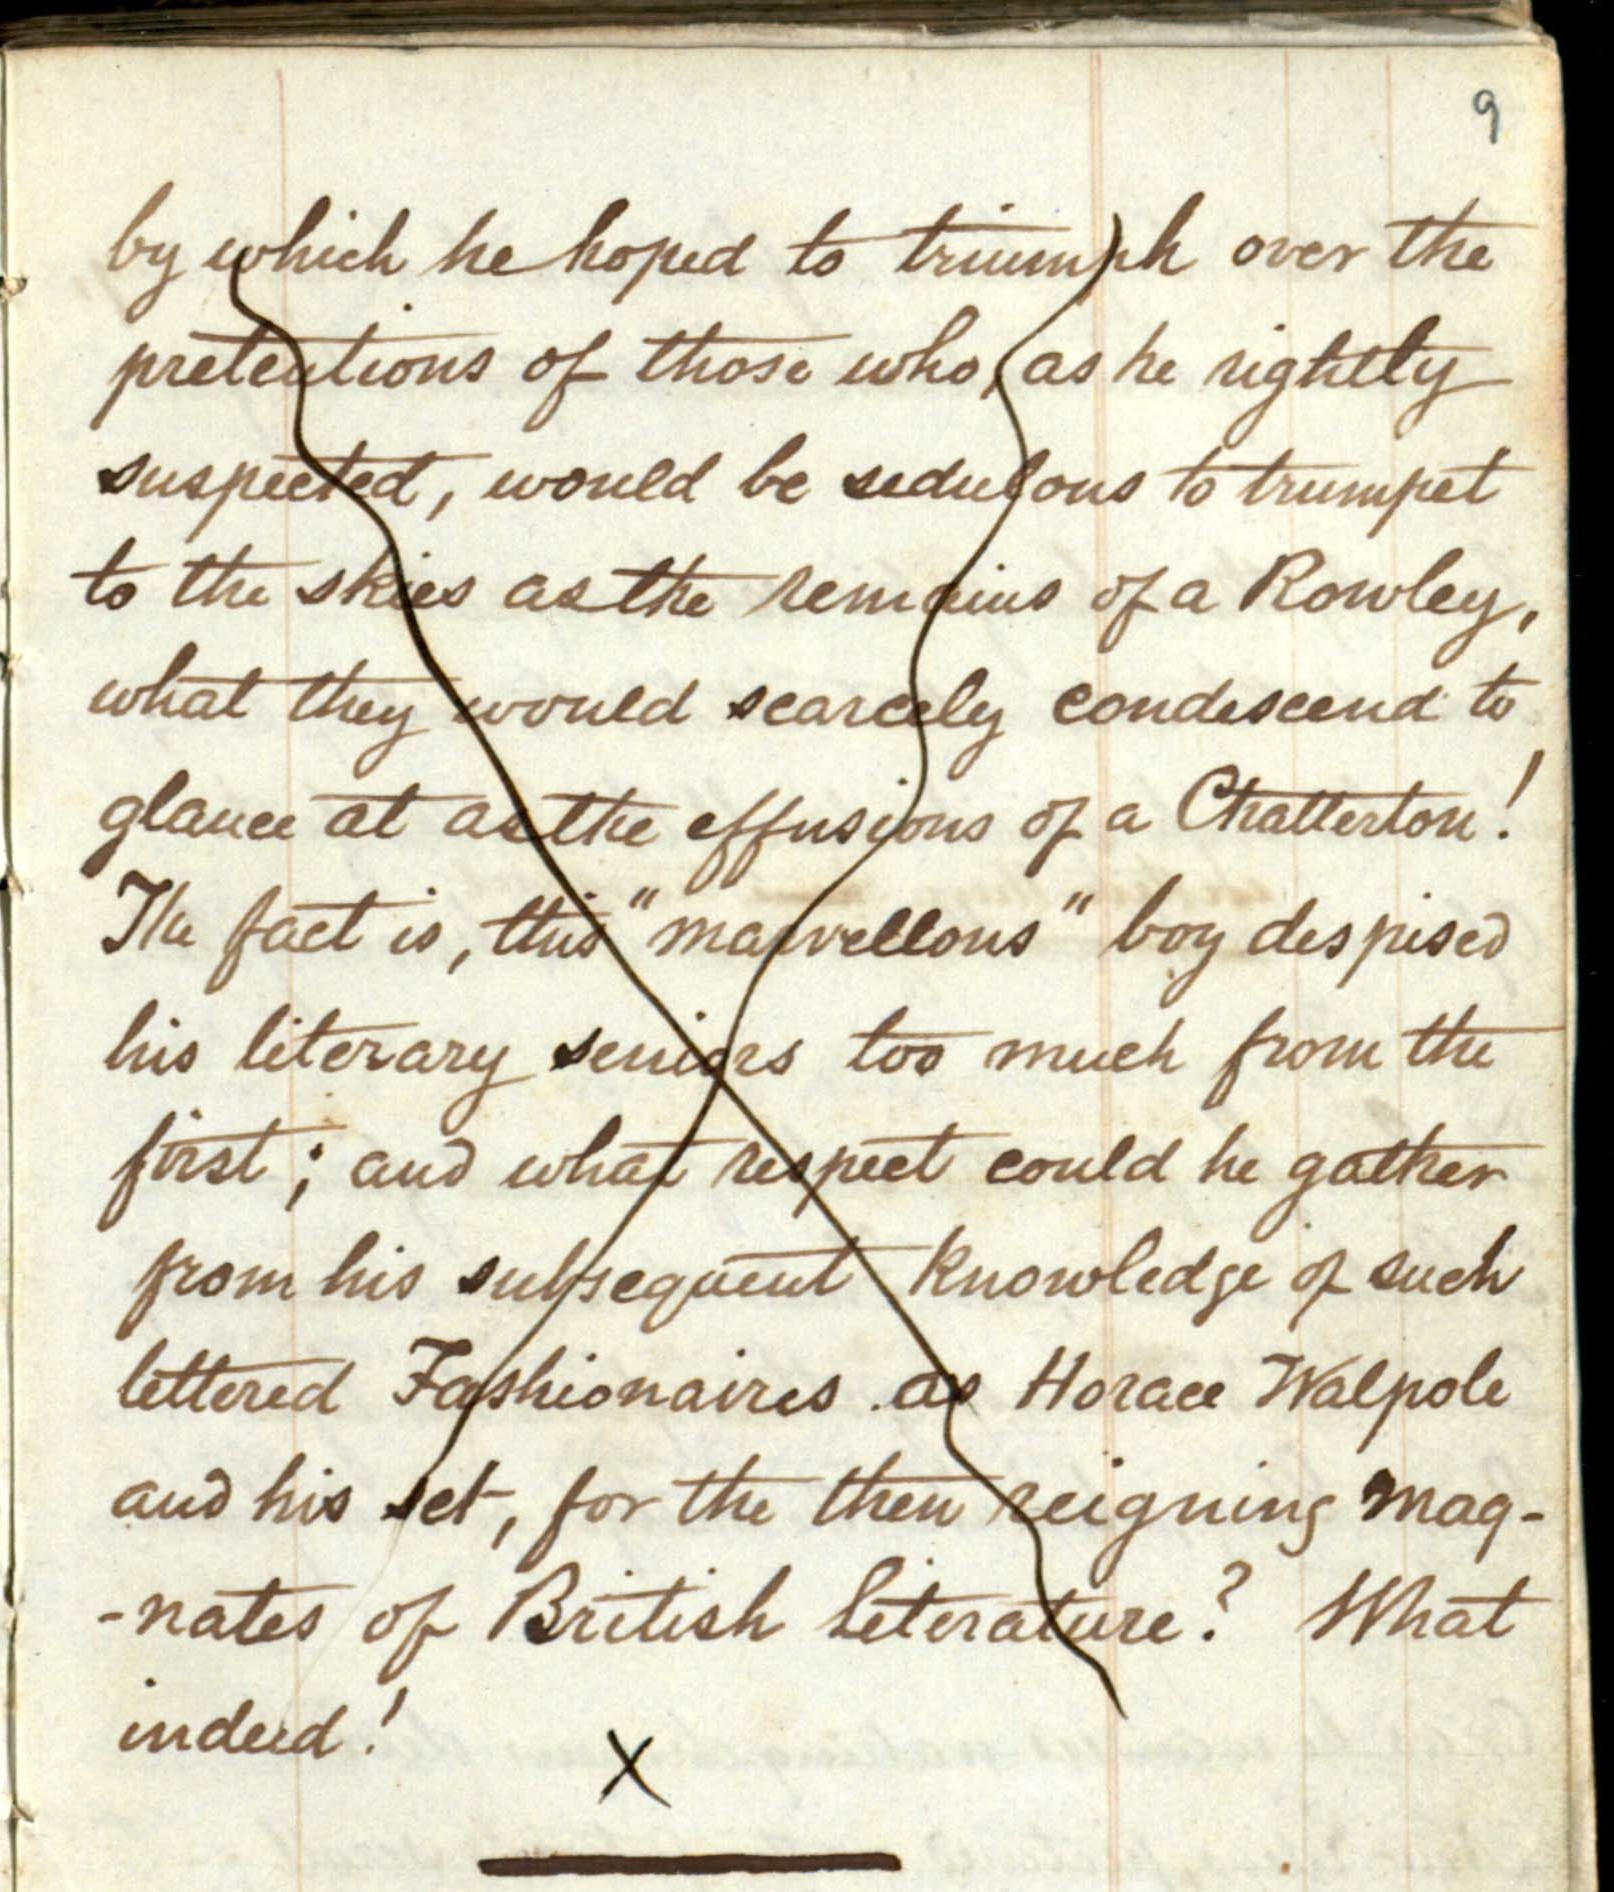 9
by which he hoped to triumph over the
pretentions of those who, as he rightly
suspected, would be sedulous to trumpet
to the skies as the remains of a Rowley,
what they would scarcely condescend to
glance at as the effusions of a Chatterton!
The fact is, this "marvellous" boy despised
his literary seniors too much from the
first; and what respect could he gather
from his subsequent knowledge of such
lettered Fashionaires as Horace Walpole
and his set, for the then reigning mag-
-nates of British literature? What
indeed!
X